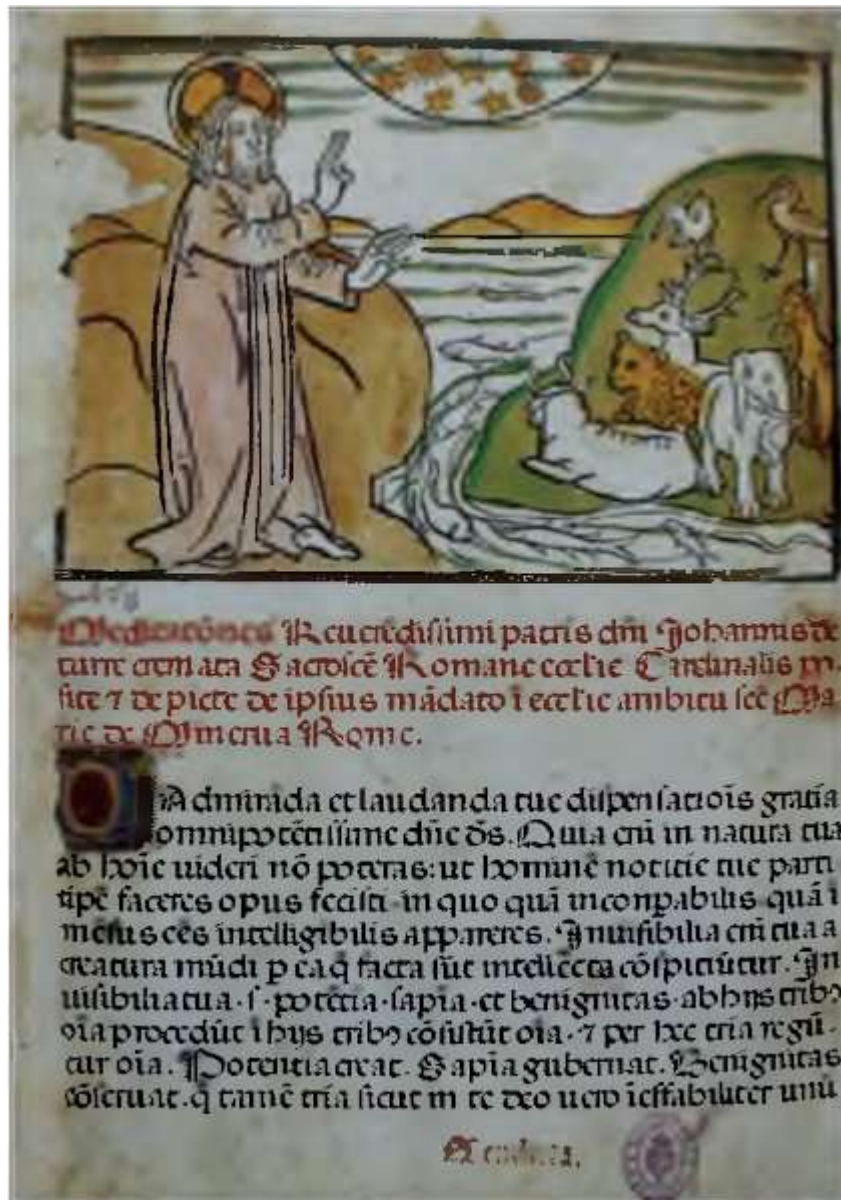 Meditatōnes Reuerēdissimi patris dñi Johannis de
turre cremata Sacrosc̄e Romane eccl'ie Cardinalis po
site ⁊ de picte de ipsius mādato ī eccl'ie ambitu sc̄e Ma
rie de Minerua Rome.
Admirāda et laudanda tue dispensatiōis gratia
omnipotētissime dñe d̄s. Quia eñi in natura tua
ab hoīe uideri nō poteras: ut hominē notitie tue parti
tipē faceres opus fecisti in quo quā inconpabilis quā ī
mēsus ēes intelligibilis appareres. Inuisibilia eñi tua a
creatura mūdi p ea q̄ facta sūt intellecta cōspiciūtur. In
uisibilia tua · s · potētia · sapīa · et benignitas · ab hijs tribꝰ
oīa procedūt ī hijs tribꝰ cōsistūt oīa · ⁊ per hec tria regū
tur oīa. Potentia creat. Sapīa gubernat. Benignitas
cōseruat. q̄ tamē tria sicut in te deo uero īeffabiliter unū